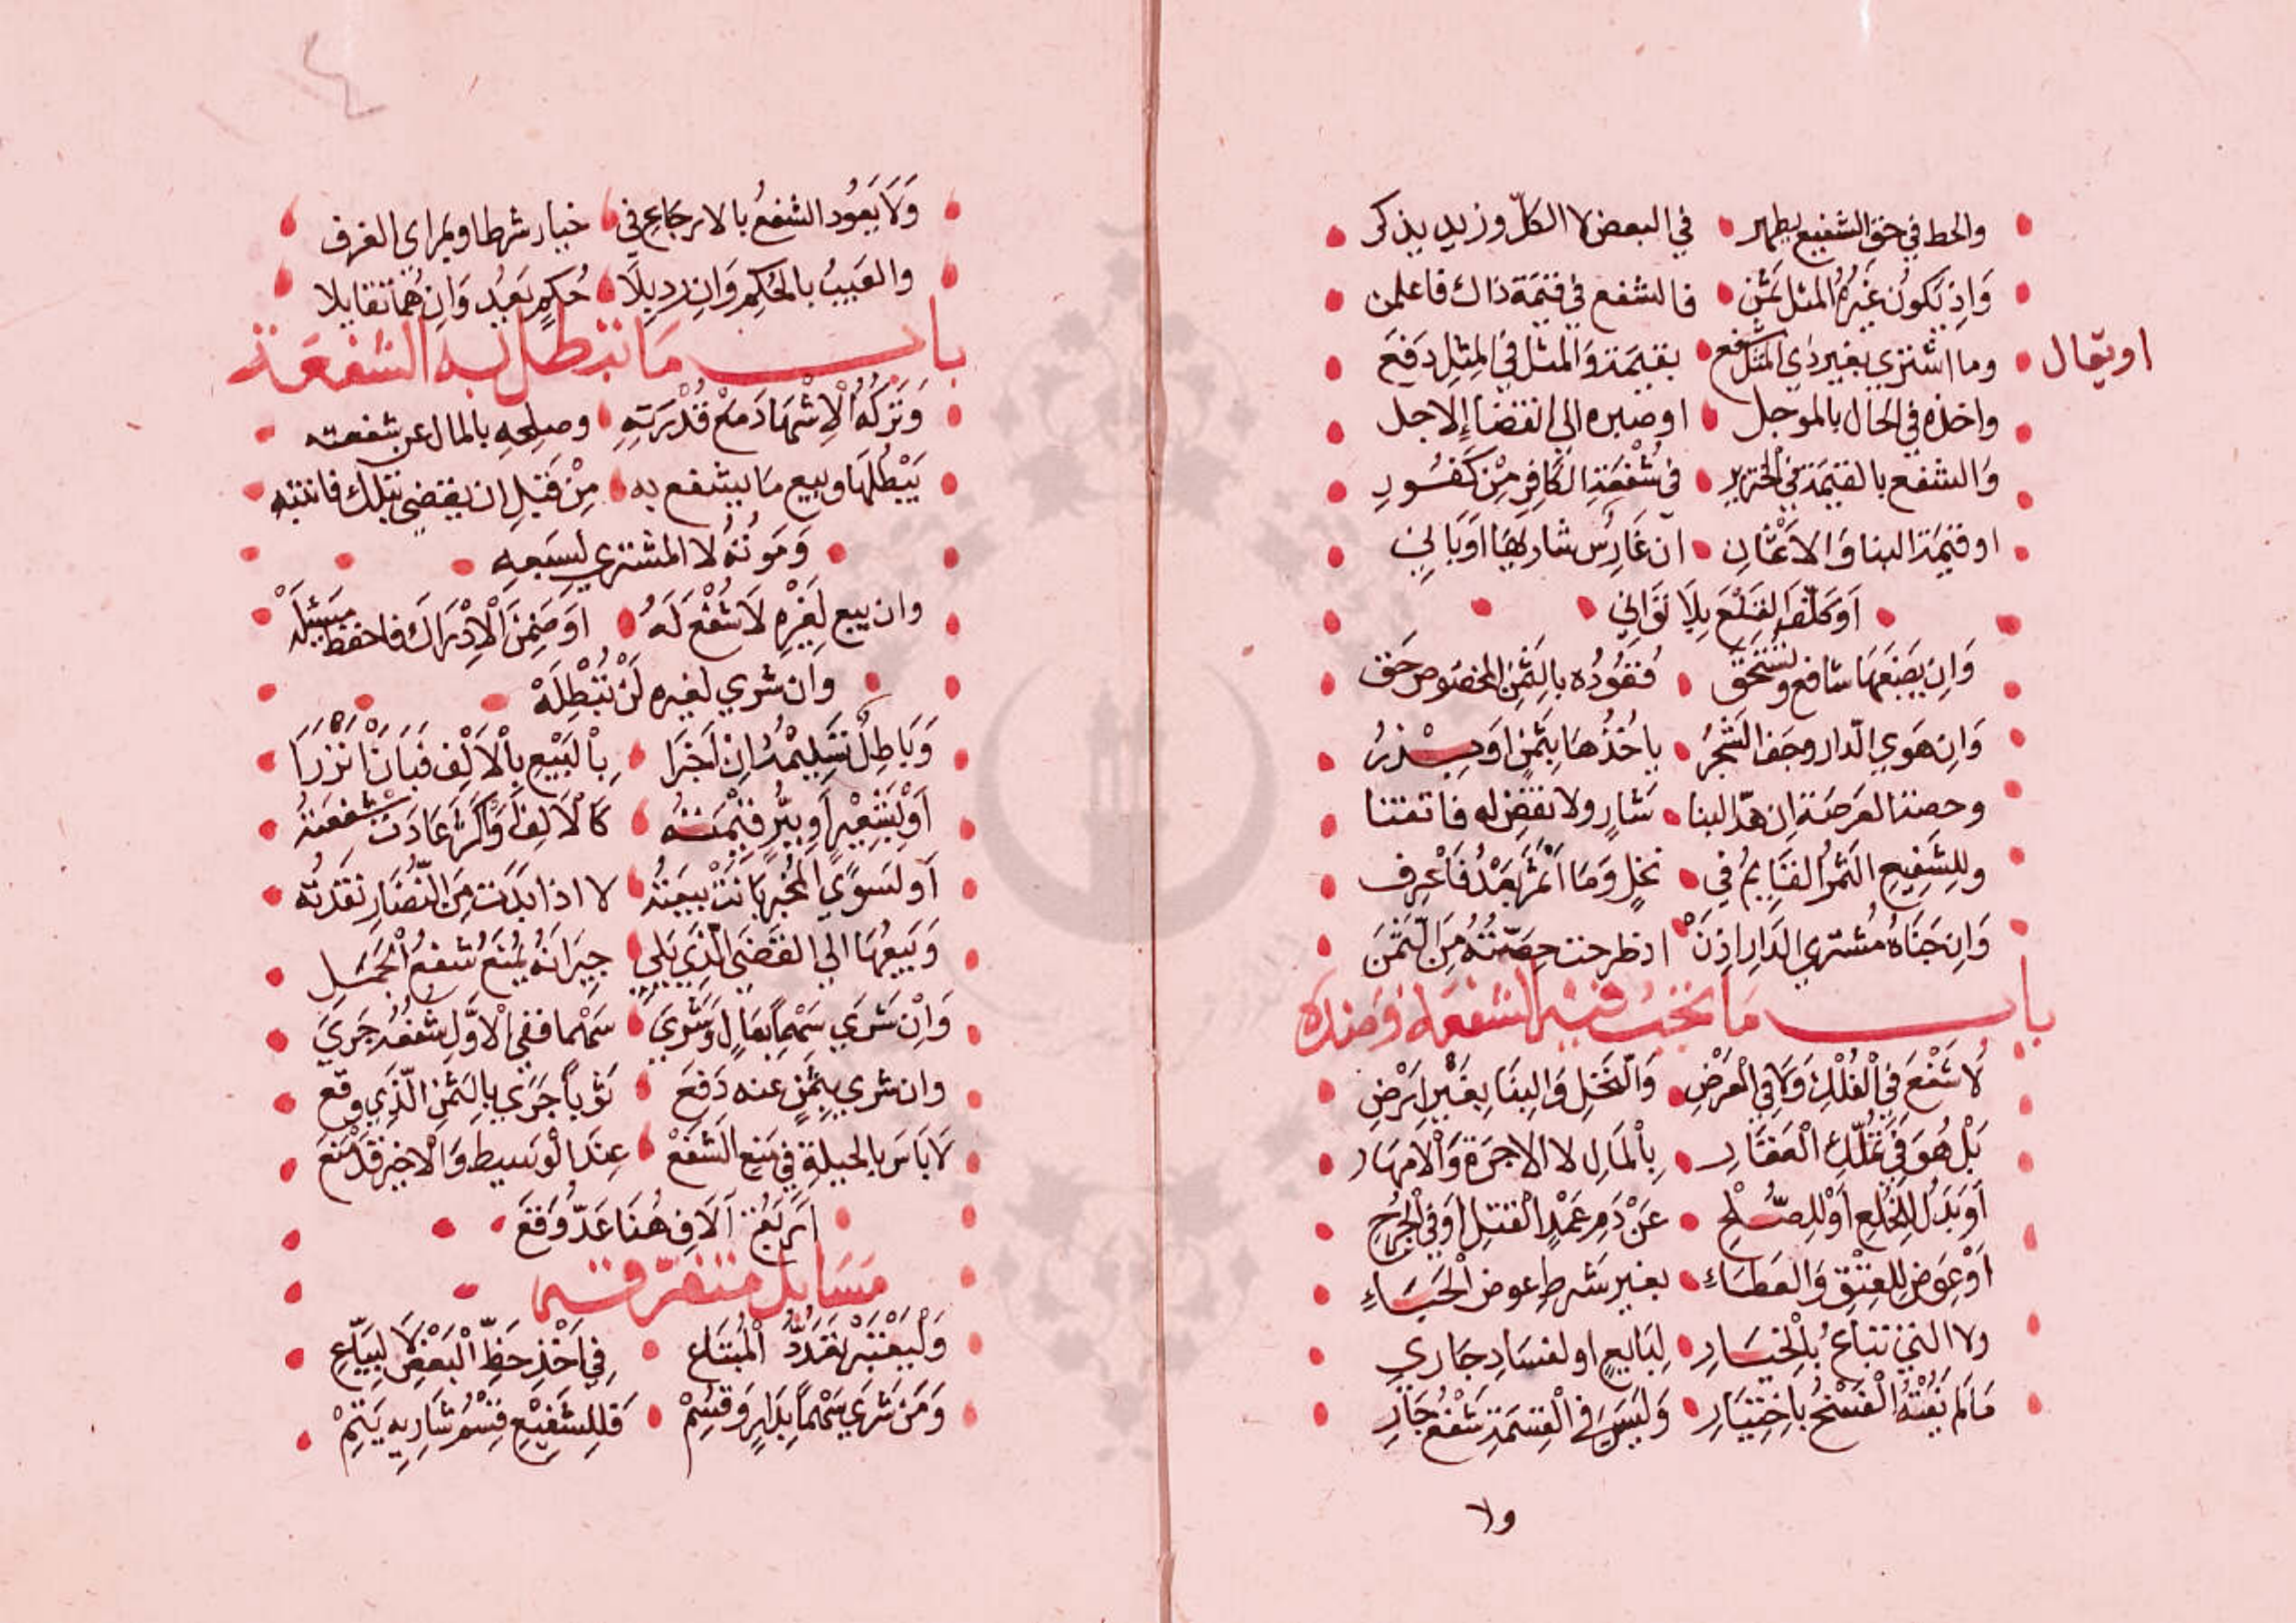 والحط في حق الشفيع يظهر في البعض لا الكلّ وزيد يذكر
وَاِن يَكُون غَيْرُه المثل ثَمَن فالشفع في قيمَة ذاك فاعلمن
او يقال
وما اشترى بغير ذي المثل شفع بقيمَة وَالمثل في المِثل دَفَعَ
واخذه في الحال بالموجل او صبره الى انقضا الاجل
وَالشفع بالقيمَة في الخنزير في شُفعَةِ الكَافِرِ مِنْ كَفُورِ
او قيمَة البنا وَالاغصَانِ ان غَارِسٌ شار بهَا اَو بَانِي
اَو كَلّفَ القَلْعَ بِلَا تَوَانِي
وَاِن يَضَعهَا شافع وتستحق فنقُودُه بالثمَنِ المخصُوص حَق
وَاِن هَوي الّدار وجف الشَجَرُ ياخُذُهَا بِثَمَنٍ اَو يَذَرُ
وحصة العَرصَة اِن هدّ البنا شَارٍ ولا نقضٍ له فاتقنا
وللِشَفِيعِ الثمرُ القَايمُ في نخلٍ وَمَا اَثمَرَ بَعدُ فَاعْرِف
وَاِن جَنَاهُ مُشتري الدَارِ اِذنْ اذ طرحت حِصّتُهُ مِنَ الثمَن
باب مَا تجب فيه الشفعَه وضده
لَا شَفْعَ فِي الْفُلْكِ وَلَا فِي الْعَرْضِ وَالنّخلِ وَالبِنَا بِغَيْرِ اَرْضِ
بَلْ هُوَ في تَمَلُّكِ الْعَقَارِ بِالمَالِ لا الاجرَةِ وَالامهَارِ
اَو بَدَلٍ للخُلْعِ اَوْ للِصُّلْحِ عَنْ دَمِ عَمْدِ القتلِ اَو في الجُرْحِ
اَوْ عِوَضٍ للعِتْقِ وَالعَطَاءِ بغير شرطِ عوض الحَيَاءِ
ولا التي تباعُ بِالخيَارِ لِبَايعٍ او لفسَادٍ جَاري
مَا لَم يَفُتْهُ الْفَسْخُ بِاخِتيَارِ وَلَيسَ في القِسمَةِ شَفْعُ جَارِ
ولا
وَلَا يَعُود الشفعُ بالارجَاعِ في خيار شرط او بمراى الغرف
والعَيبُ بالحُكمِ وَاِن رد بِلَا حُكمٍ يَعُد وَاِن هُمَا تقايلا
باب مَا تبطل به الشفعَة
وَتَركُهُ الْاِشْهَادَ مَعْ قُدْرَتِهِ وصلحهِ بالمال عن شفعته
يَبْطُلهَا وبيع مَا يشفع به مِنْ قَبلِ ان يقضي بتلك فانتبه
وَمَوتُهُ لا المشتري لسبعهِ
وان يبع لِغَيْرِهِ لَا شُفْعَ لَهُ اوَ ضَمِنَ الْاِدْرَاكَ فاحفظ
وان شري لغيره لَنْ تُبْطِلَهْ
وَبَاطِلٌ تَسْليمُهُ اِن اَخبرَا بِالبَيْعِ بِالْاَلْفِ فَبَانَ نَزْرَا
اَوْ بشَعِيْرٍ اَو بِبُرٍّ قيْمَتُه كَالاَلفِ اَوْ اَكثَرَ عَادَت شفعَتهُ
اَو لسوَى المخبر بَانَتْ بيعتُه لا اذا بدَت مِنَ النّضَارِ نقدتُه
وَبَيعُهَا الي القضَى الّذي يَلي جِيَرانُه يُمنَعُ شفعُ الجمَلِ
وَاِنْ شَرَي سَهْماً بمَالٍ وَشَرَي سَهْما ففي الْاَوّلِ شفعُهُ جَرَيَ
وان شري بِثَمَنٍ عنه دَفعَ ثَوْباً جَرَي بِالثَمَنِ الّذي وقع
لَا بَاسَ بالحيلةِ في مَنع الشفعْ عِندَ الْوَسيط وَالْاخير قَدْ مَنَعَ
اَربَعَةُ آلَافٍ هُنَا عَدّ وَقَعَ
مَسَايل متفرّقة
وَلْيُعْتَبَرْ تعَدّدُ المُبْتَاعِ فِي اَخذِ حَظِّ الْبَعْضِ لَا البيّاعِ
وَمَن شَرَى سَهْماً بِدَارٍ وَقُسِمْ فللِشفيْعِ قسْمُ شَارِيهِ يَتِمْ